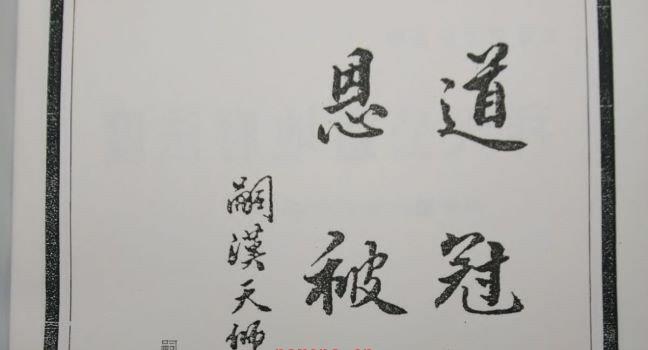 道冠
恩被
嗣漢天師